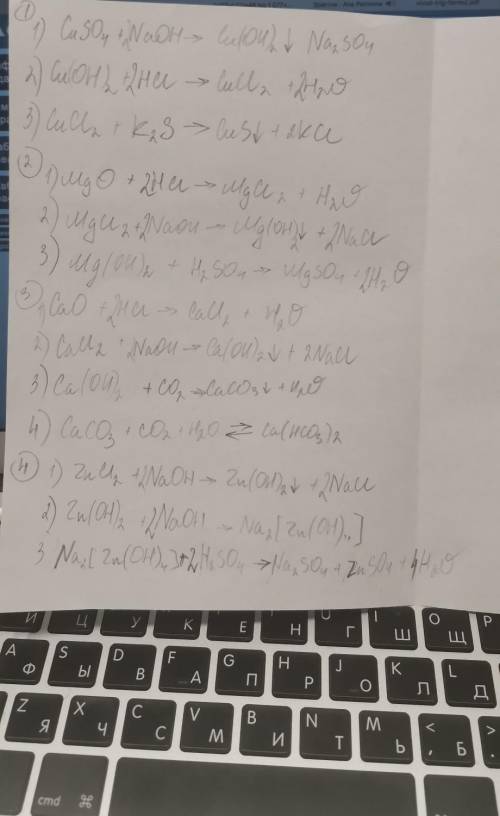 ①
1) CuSO4 + 2NaOH → Cu(OH)2↓ Na2SO4
2) Cu(OH)2 + 2HCl → CuCl2 + 2H2O
3) CuCl2 + K2S → CuS↓ + 2KCl
②
1) MgO + 2HCl → MgCl2 + H2O
2) MgCl2 + 2NaOH → Mg(OH)2↓ + 2NaCl
3) Mg(OH)2 + H2SO4 → MgSO4 + 2H2O
③
1) CaO + 2HCl → CaCl2 + H2O
2) CaCl2 + 2NaOH → Ca(OH)2↓ + 2NaCl
3) Ca(OH)2 + CO2 → CaCO3↓ + H2O
4) CaCO3 + CO2 + H2O ⇄ Ca(HCO3)2
④ 1) ZnCl2 + 2NaOH → Zn(OH)2↓ + 2NaCl
2) Zn(OH)2 + 2NaOH → Na2[Zn(OH)4]
3 Na2[Zn(OH)4] + 2H2SO4 → Na2SO4 + ZnSO4 + 4H2O
Й Ц У К Е Н Г I Ш O Щ P
A Ф S Ы D В F А G П H Р J О K Л L Д
Z Я X Ч C С V М B И N Т M Ь < , Б > .
cmd ⌘